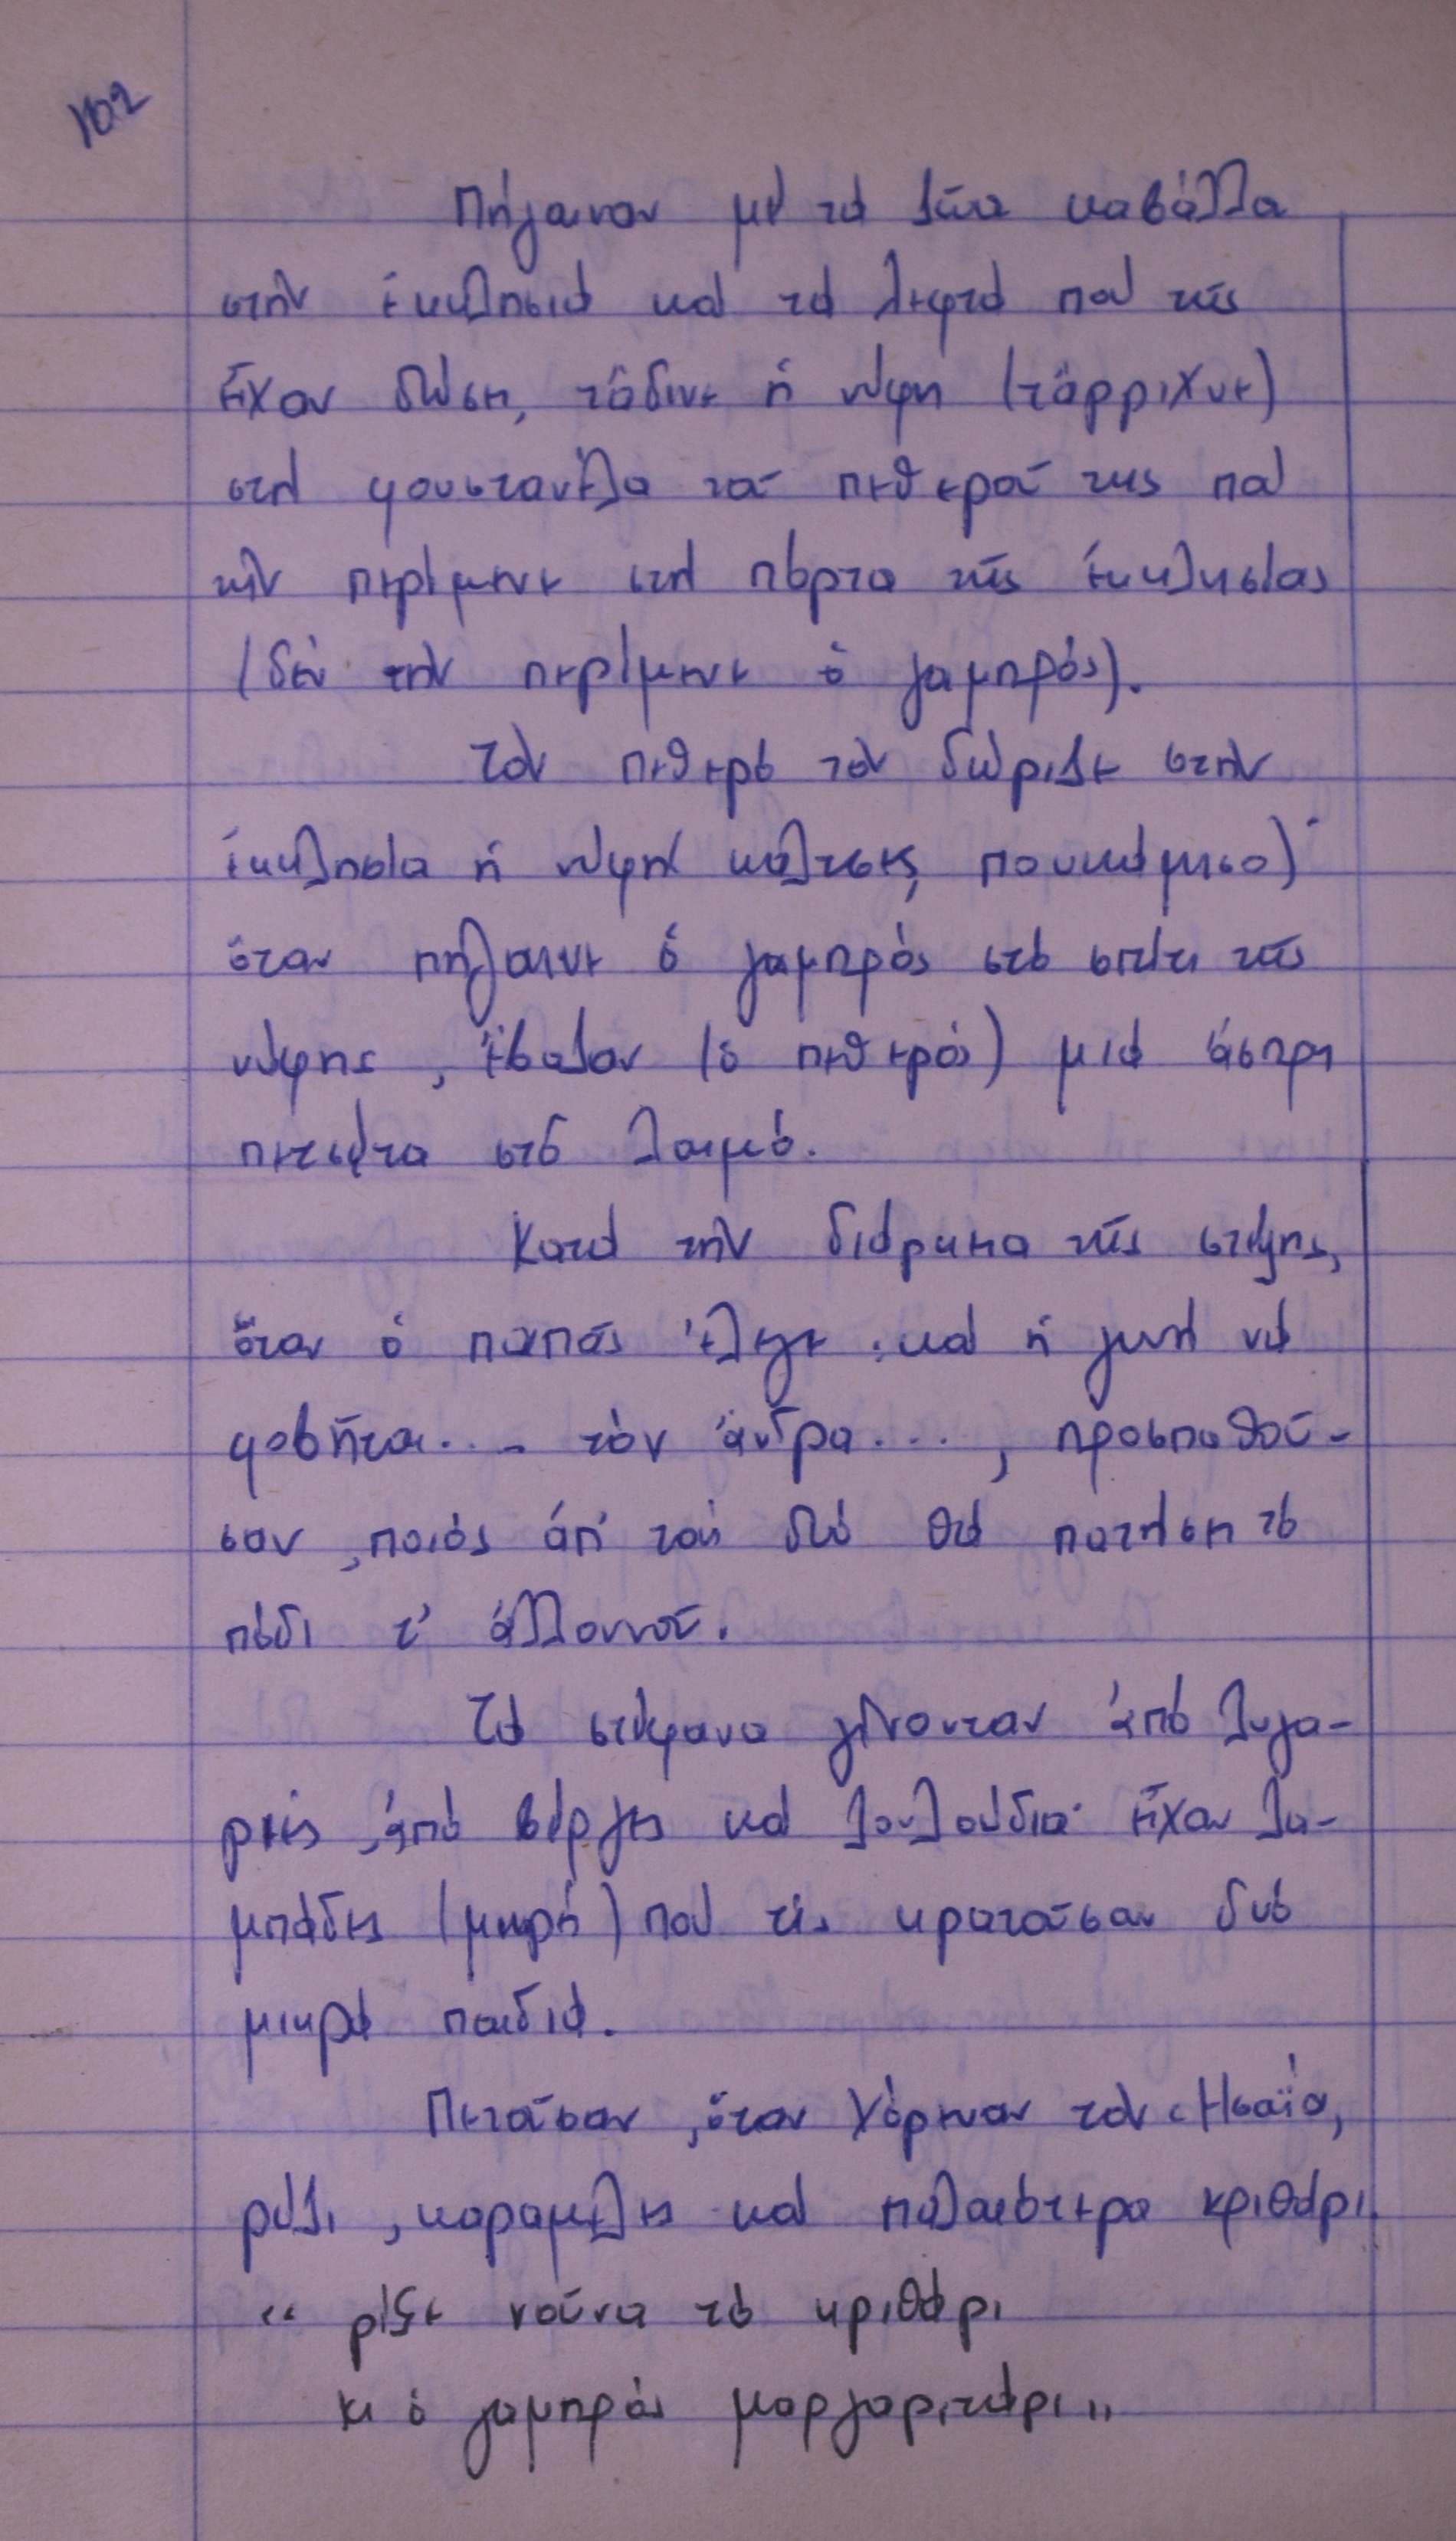 102
Πήγαιναν μὲ τὰ ζῶα καβάλλα
στὴν ἐκκλησιὰ καὶ τὰ λεφτὰ ποὺ τῆς
εἶχαν δώσει, τὄδινε ἡ νύφη (τὄρριχνε)
στὴ φουστανέλα τοῦ πεθεροῦ της ποὺ
τὴν περίμενε στὴ πόρτα τῆς ἐκκλησίας
(δὲν τὴν περίμενε ὁ γαμπρός).
Τὸν πεθερὸ τὸν δώριζε στὴν
ἐκκλησία ἡ νύφη κάλτσες, πουκάμισο)·
ὅταν πήγαινε ὁ γαμπρὸς στὸ σπίτι τῆς
νύφης, ἔβαζαν (ὁ πεθερός) μιὰ ἄσπρη
πετσέτα στὸ λαιμό.
Κατὰ τὴν διάρκεια τῆς στέψης,
ὅταν ὁ παπάς ἔλεγε: καὶ ἡ γυνὴ νὰ
φοβῆται... τὸν ἄνδρα..., προσπαθοῦ-
σαν, ποιός ἀπ' τοὺς δυὸ θὰ πατήσει τὸ
πόδι τ' ἀλλουνοῦ.
Τὰ στέφανα γίνονταν ἀπὸ λυγα-
ριές, ἀπὸ βέργες καὶ λουλούδια· εἶχαν λα-
μπάδες (μικρή) ποὺ τὶς κρατοῦσαν δυὸ
μικρὰ παιδιά.
Πετοῦσαν, ὅταν χόρευαν τὸν Ἠσαΐα,
ρύζι, καραμέλες καὶ παλαιότερα κριθάρι.
"ρίξε νούνα τὸ κριθάρι
κι ὁ γαμπρός μαργαριτάρι"